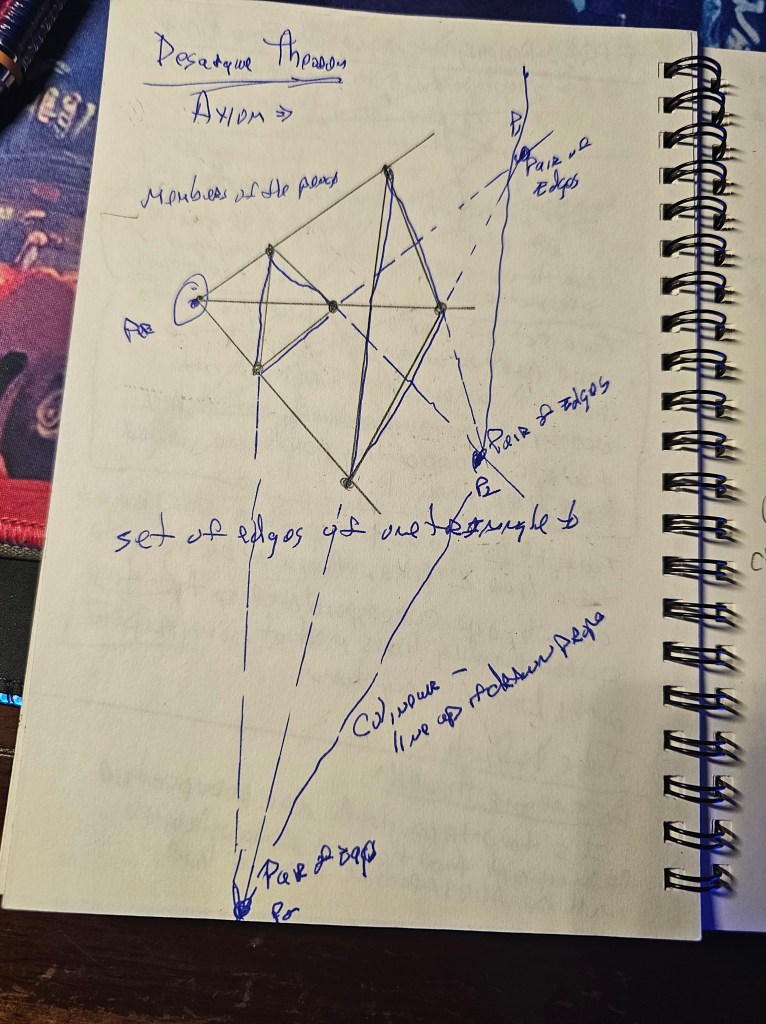 Desargue Theorem
Axiom ⇒
Members of the pencil
P1
Pair of
Edges
Pair of Edges
P2
set of edges of one triangle b
Colinear -
line up if drawn
Pair of Edges